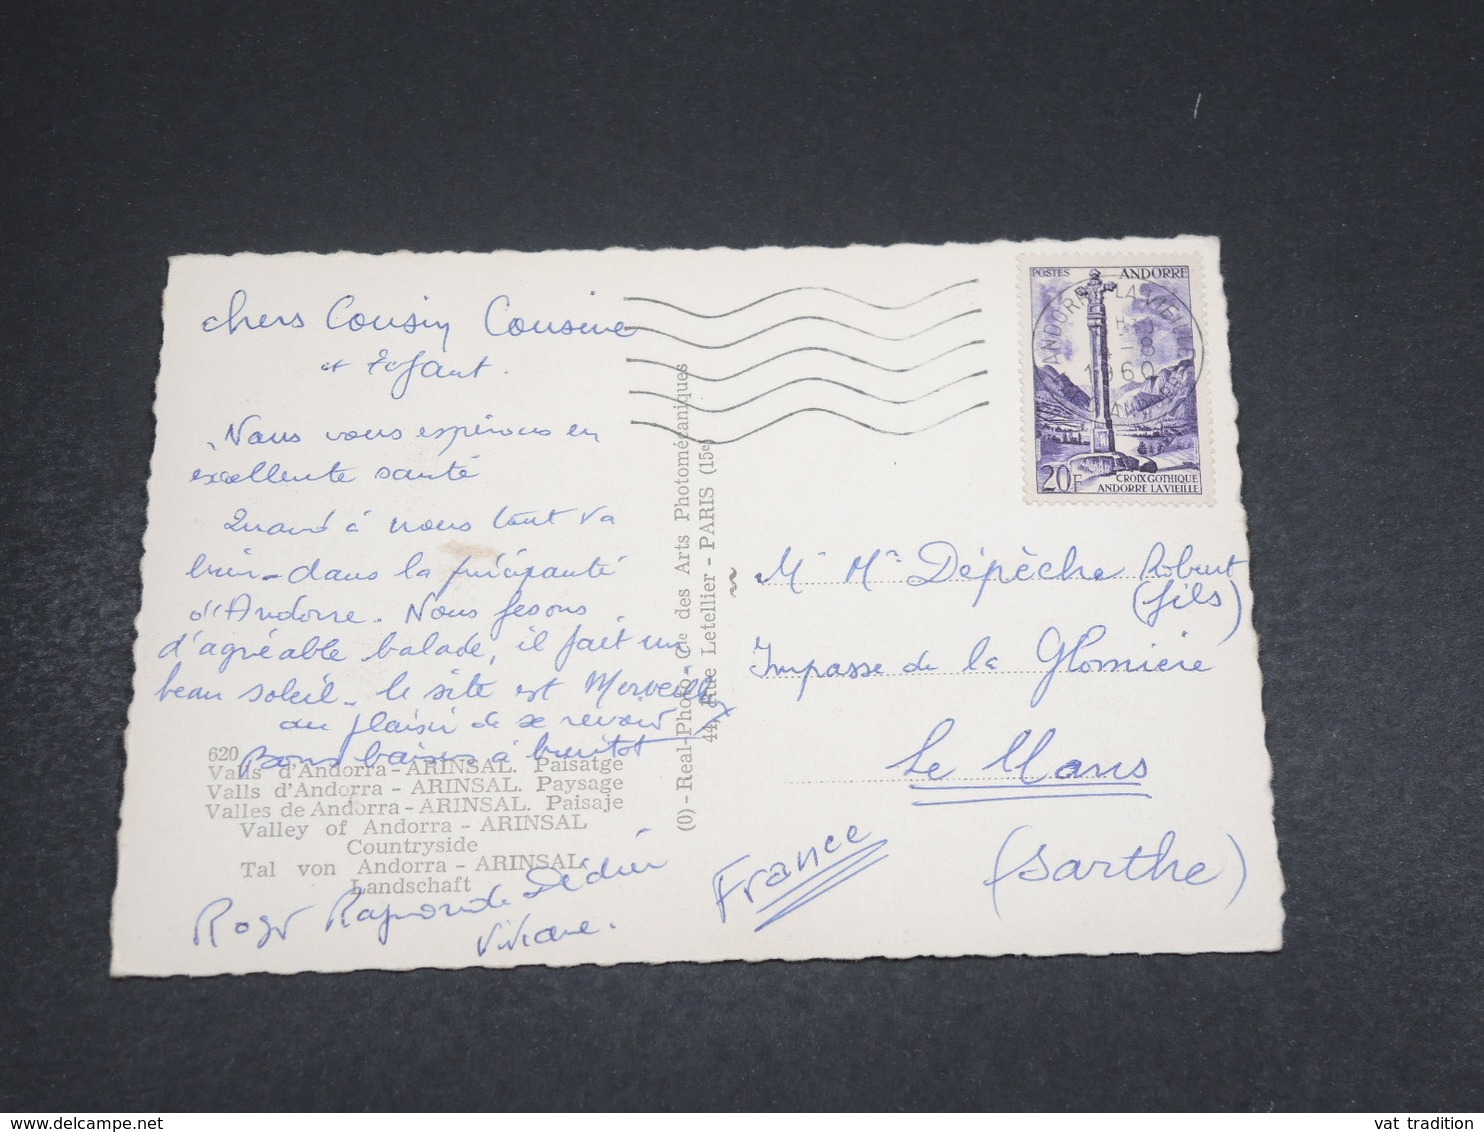 chers Cousin Cousine
et Enfant.
Nous vous espérons en
excellente santé
Quand à nous tout va
bien - dans la principauté
d'Andorre. Nous fesons
d'agréable balade, il fait un
beau soleil. le site est Merveill
au plaisir de se revoir
Bons baisers à bientot
Roger Raymonde Dédier
Viviane.
620
Valls d'Andorra - ARINSAL. Paisatge
Valls d'Andorra - ARINSAL. Paysage
Valles de Andorra - ARINSAL. Paisaje
Valley of Andorra - ARINSAL
Countryside
Tal von Andorra - ARINSAL
Landschaft
(O) - Real-Photo - Cie des Arts Photomécaniques
44, Rue Letellier - PARIS (15e)
POSTES ANDORRE
ANDORRE-LA-VIEILLE
1960
20F
CROIX GOTHIQUE
ANDORRE LA VIEILLE
Mr Mme Dépèche Robert
(fils)
Impasse de la Glonnière
Le Mans
(Sarthe)
France
vat tradition
delcampe.net